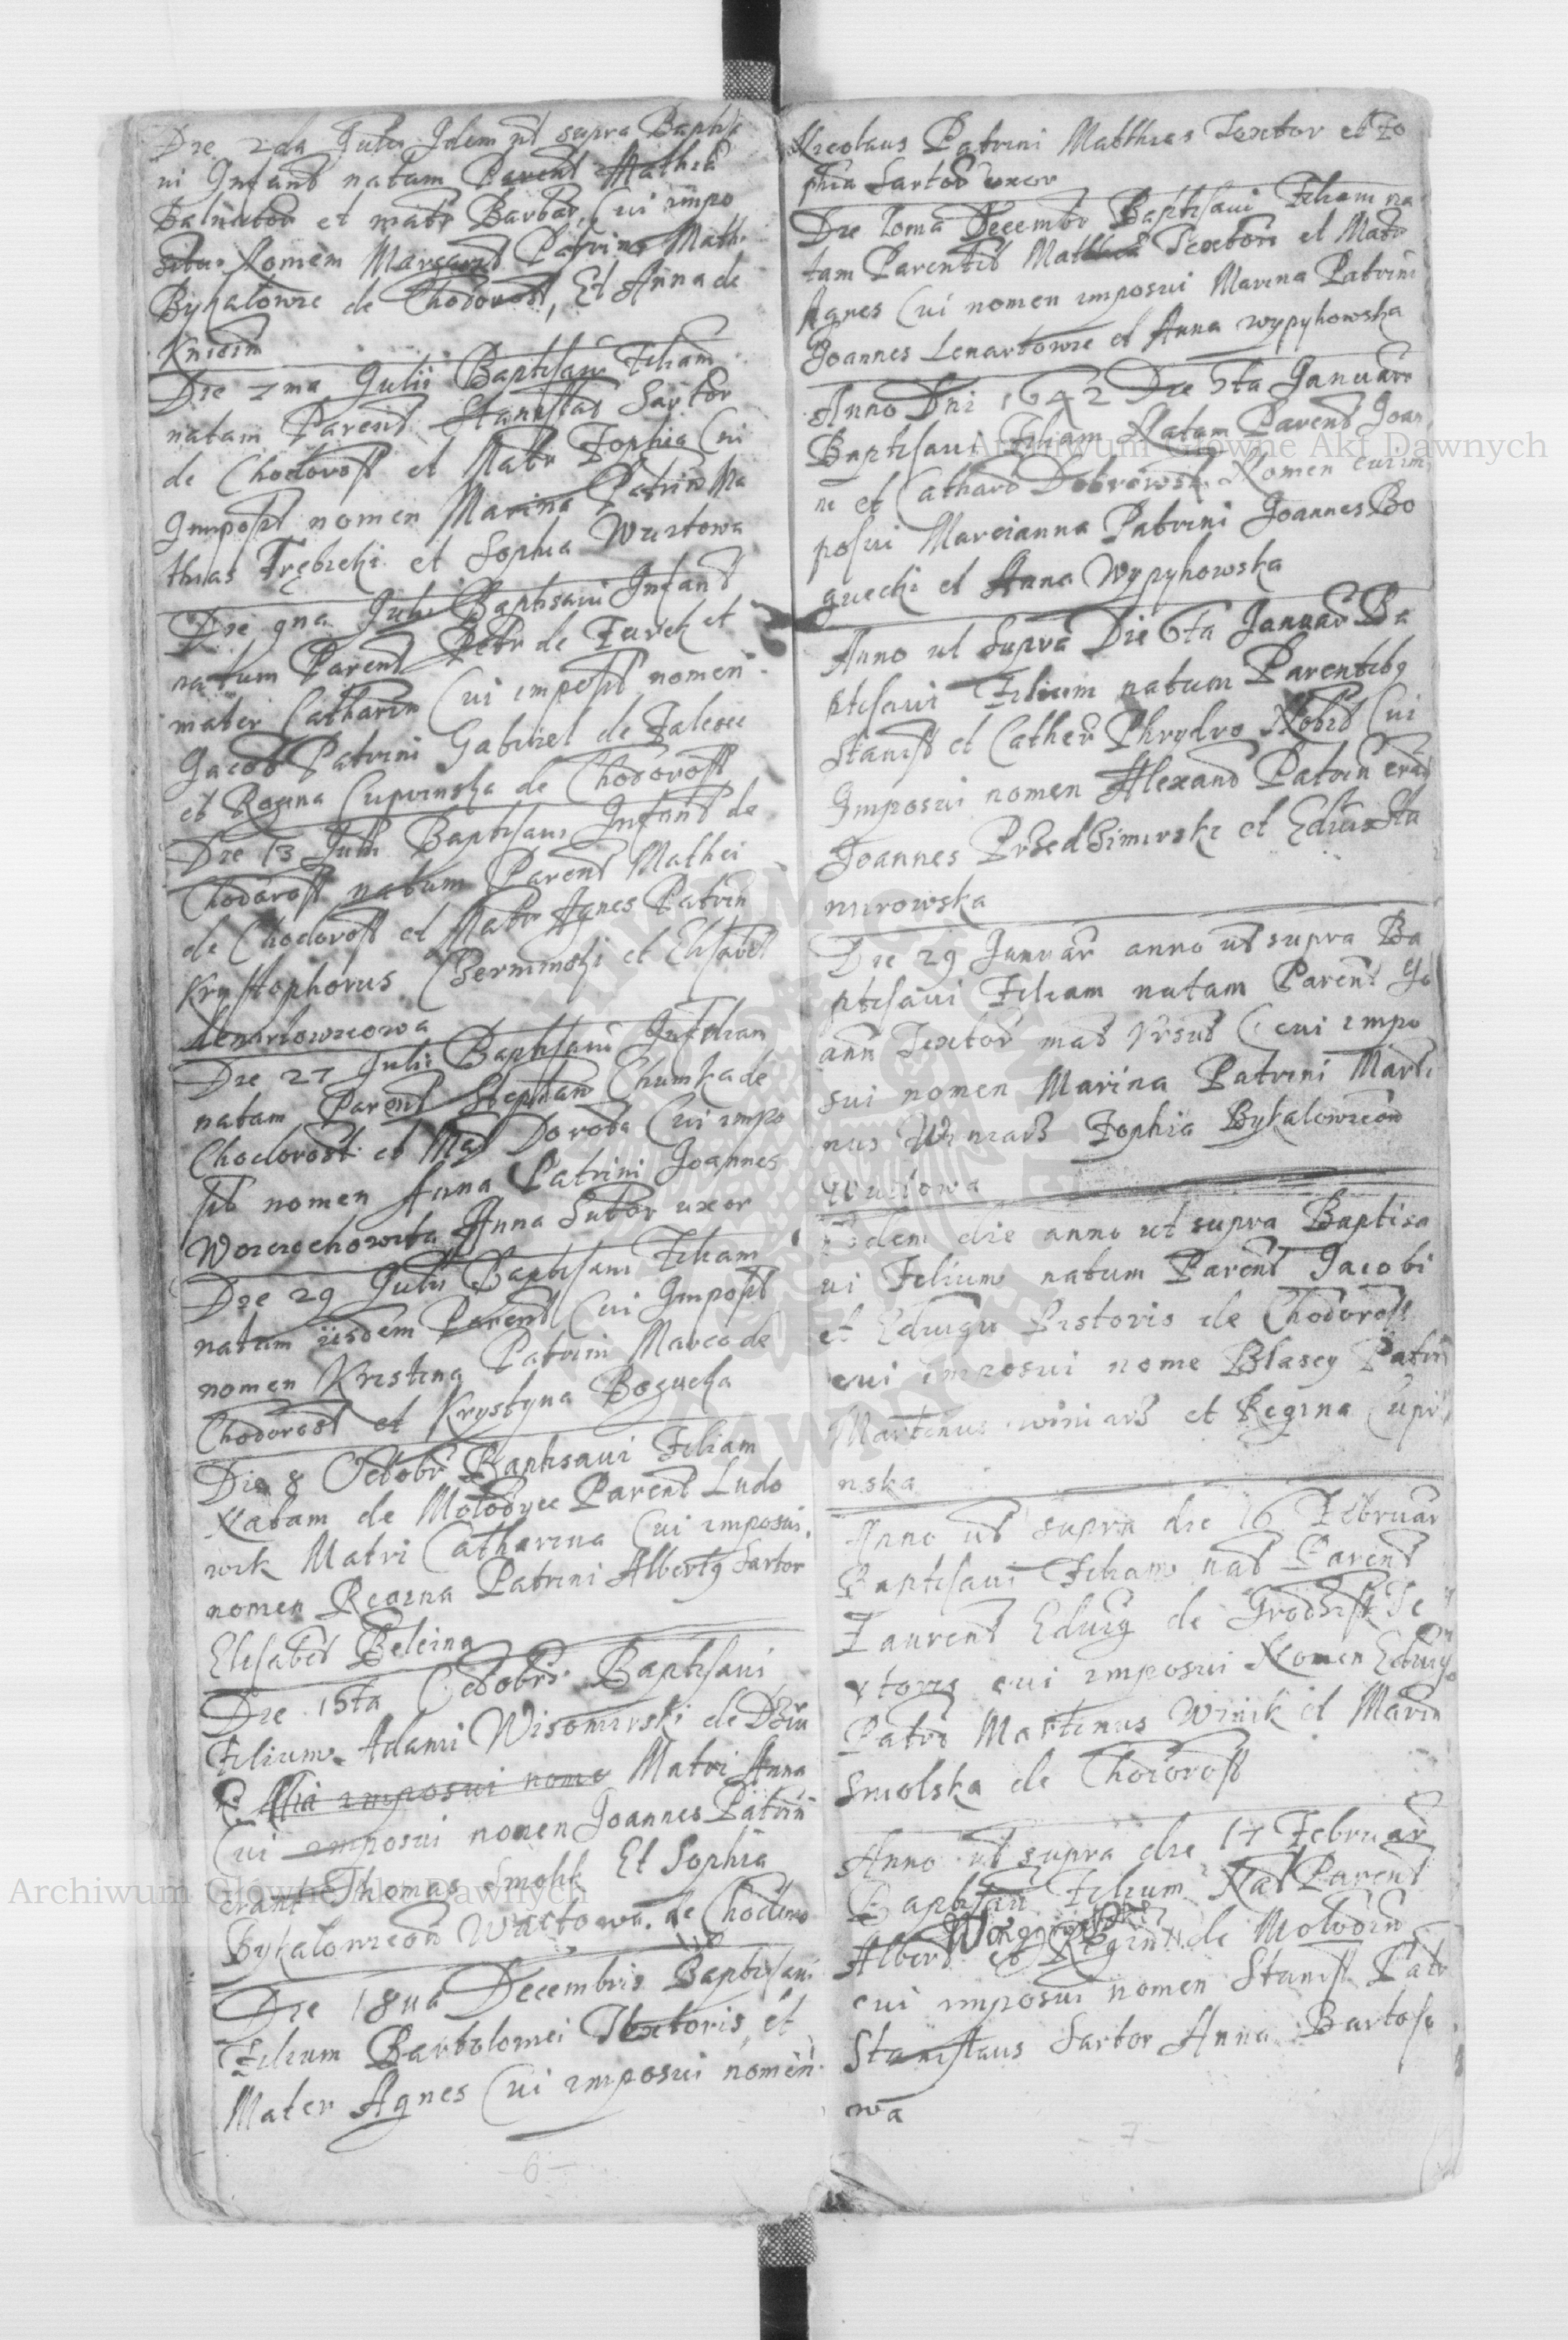 Die 2da Julii Idem ut supra Baptisa
vi Infant natam Parent Mathia
Balneator et matr Barbar, Cui impo
Nomen Margarit Patrini Math
Bykalowic de Chodorost, Et Anna de
Kniesin
Die 7ma Julii Baptisavi Filiam
natam Parent Stanislao Sartor
de Chodorost et Matr Zophia Cui
Imposit nomen Marina Patrin Ma
thias Trębicki et Sophia Wutowa
Die 9na Julii Baptisavi Infant
natum Parent Petr de Turek et
mater Catharin Cui imposit nomen
Jacob Patrini Gabriel de Zalesie
et Regina Cuprinska de Chodorost
Die 13 Julii Baptisavi Infant de
Chodorost natum Parent Mathei
de Chodorost et Matr Agnes Patrin
Krystophorus Czerminski et Elisabet
Lenartowiczowa
Die 27 Julii Baptisavi
natam Parent Stephan Chumka de
Chodorost et Mat Dorota Cui impo
sit nomen Anna Patrini Joannes
Woiciechowicz Anna Sutor uxor
Die 29 Julii Baptisavi Filiam
natam iisdem Parent Cui Imposit
nomen Kristina Patrini Marco de
Chodorost et Krystyna Bogucka
Die 8 Octobr Baptisavi Filiam
Natam de Molodycz Parent Ludo
wik Matri Catharina Cui imposui
nomen Regina Patrini Albertg Sartor
Elisabet Beleina
Die 15ta Octobris Baptisavi
Filium Adami Wisomirski de
imposui nome Matri Anna
Cui imposui nomen Joannes Patrin
erant Thomas Smolk Et Sophia
Bykalowiczow Wutowa de Chodoro
Die 18va Decembris Baptisavi
Filium Bartolomei Textoris et
Mater Agnes Cui imposui nomen
-6-
Nicolaus Patrini Matthias Textor et Zo
phia Sartor uxor
Die Decembr Baptisavi Filiam na
tam Parentib Matthia Textori et Matr
Agnes Cui nomen imposui Marina Patrini
Joannes Lenartowic et Anna wypyhowska
Anno Dni 1642 Die 5ta Januar
Baptisavi Filiam Natam Parent Joan
ni et Cathar Dobrowsk Nomen cui im
posui Marcianna Patrini Joannes Bo
guecki et Anna Wypyhowska
Anno ut Supra Die 6ta Januar Ba
ptisavi Filium natum Parentibg
Stanisl et Cather Phrydro Nobil Cui
Imposui nomen Alexand Patrin erat
Joannes Przedzimirski et Edvi Sta
mirowska
Die 29 Januar anno ut supra Ba
ptisavi Filiam natam Parent Jo
ann Textor mat Ursul cui impo
sui nomen Marina Patrini Marti
nus Winiarz Zophia Bykalowiczow
Wutowa
Eodem die anno ut supra Baptisa
vi Filium natum Parent Jacobi
et Edvigis Pistoris de Chodorost
cui imposui nome Blasey Patri
Martinus winiarz et Regina Cupri
nska
Anno ut supra die 16 Februar
Baptisavi Filiam nat Parent
Laurent Edvig de Grodzisk Te
xtoris cui imposui Nomen Edvig
Patri Martinus Winik et Marin
Smolska de Chodorost
Anno ut supra die 17 Februar
Baptisavi Filium Nat Parent
Albert et Regina de Molodzi
cui imposui nomen Stanisl Patr
Stanislaus Sartor Anna Bartoso
wa
-7-
Archiwum Główne Akt Dawnych
Archiwum Główne Akt Dawnych